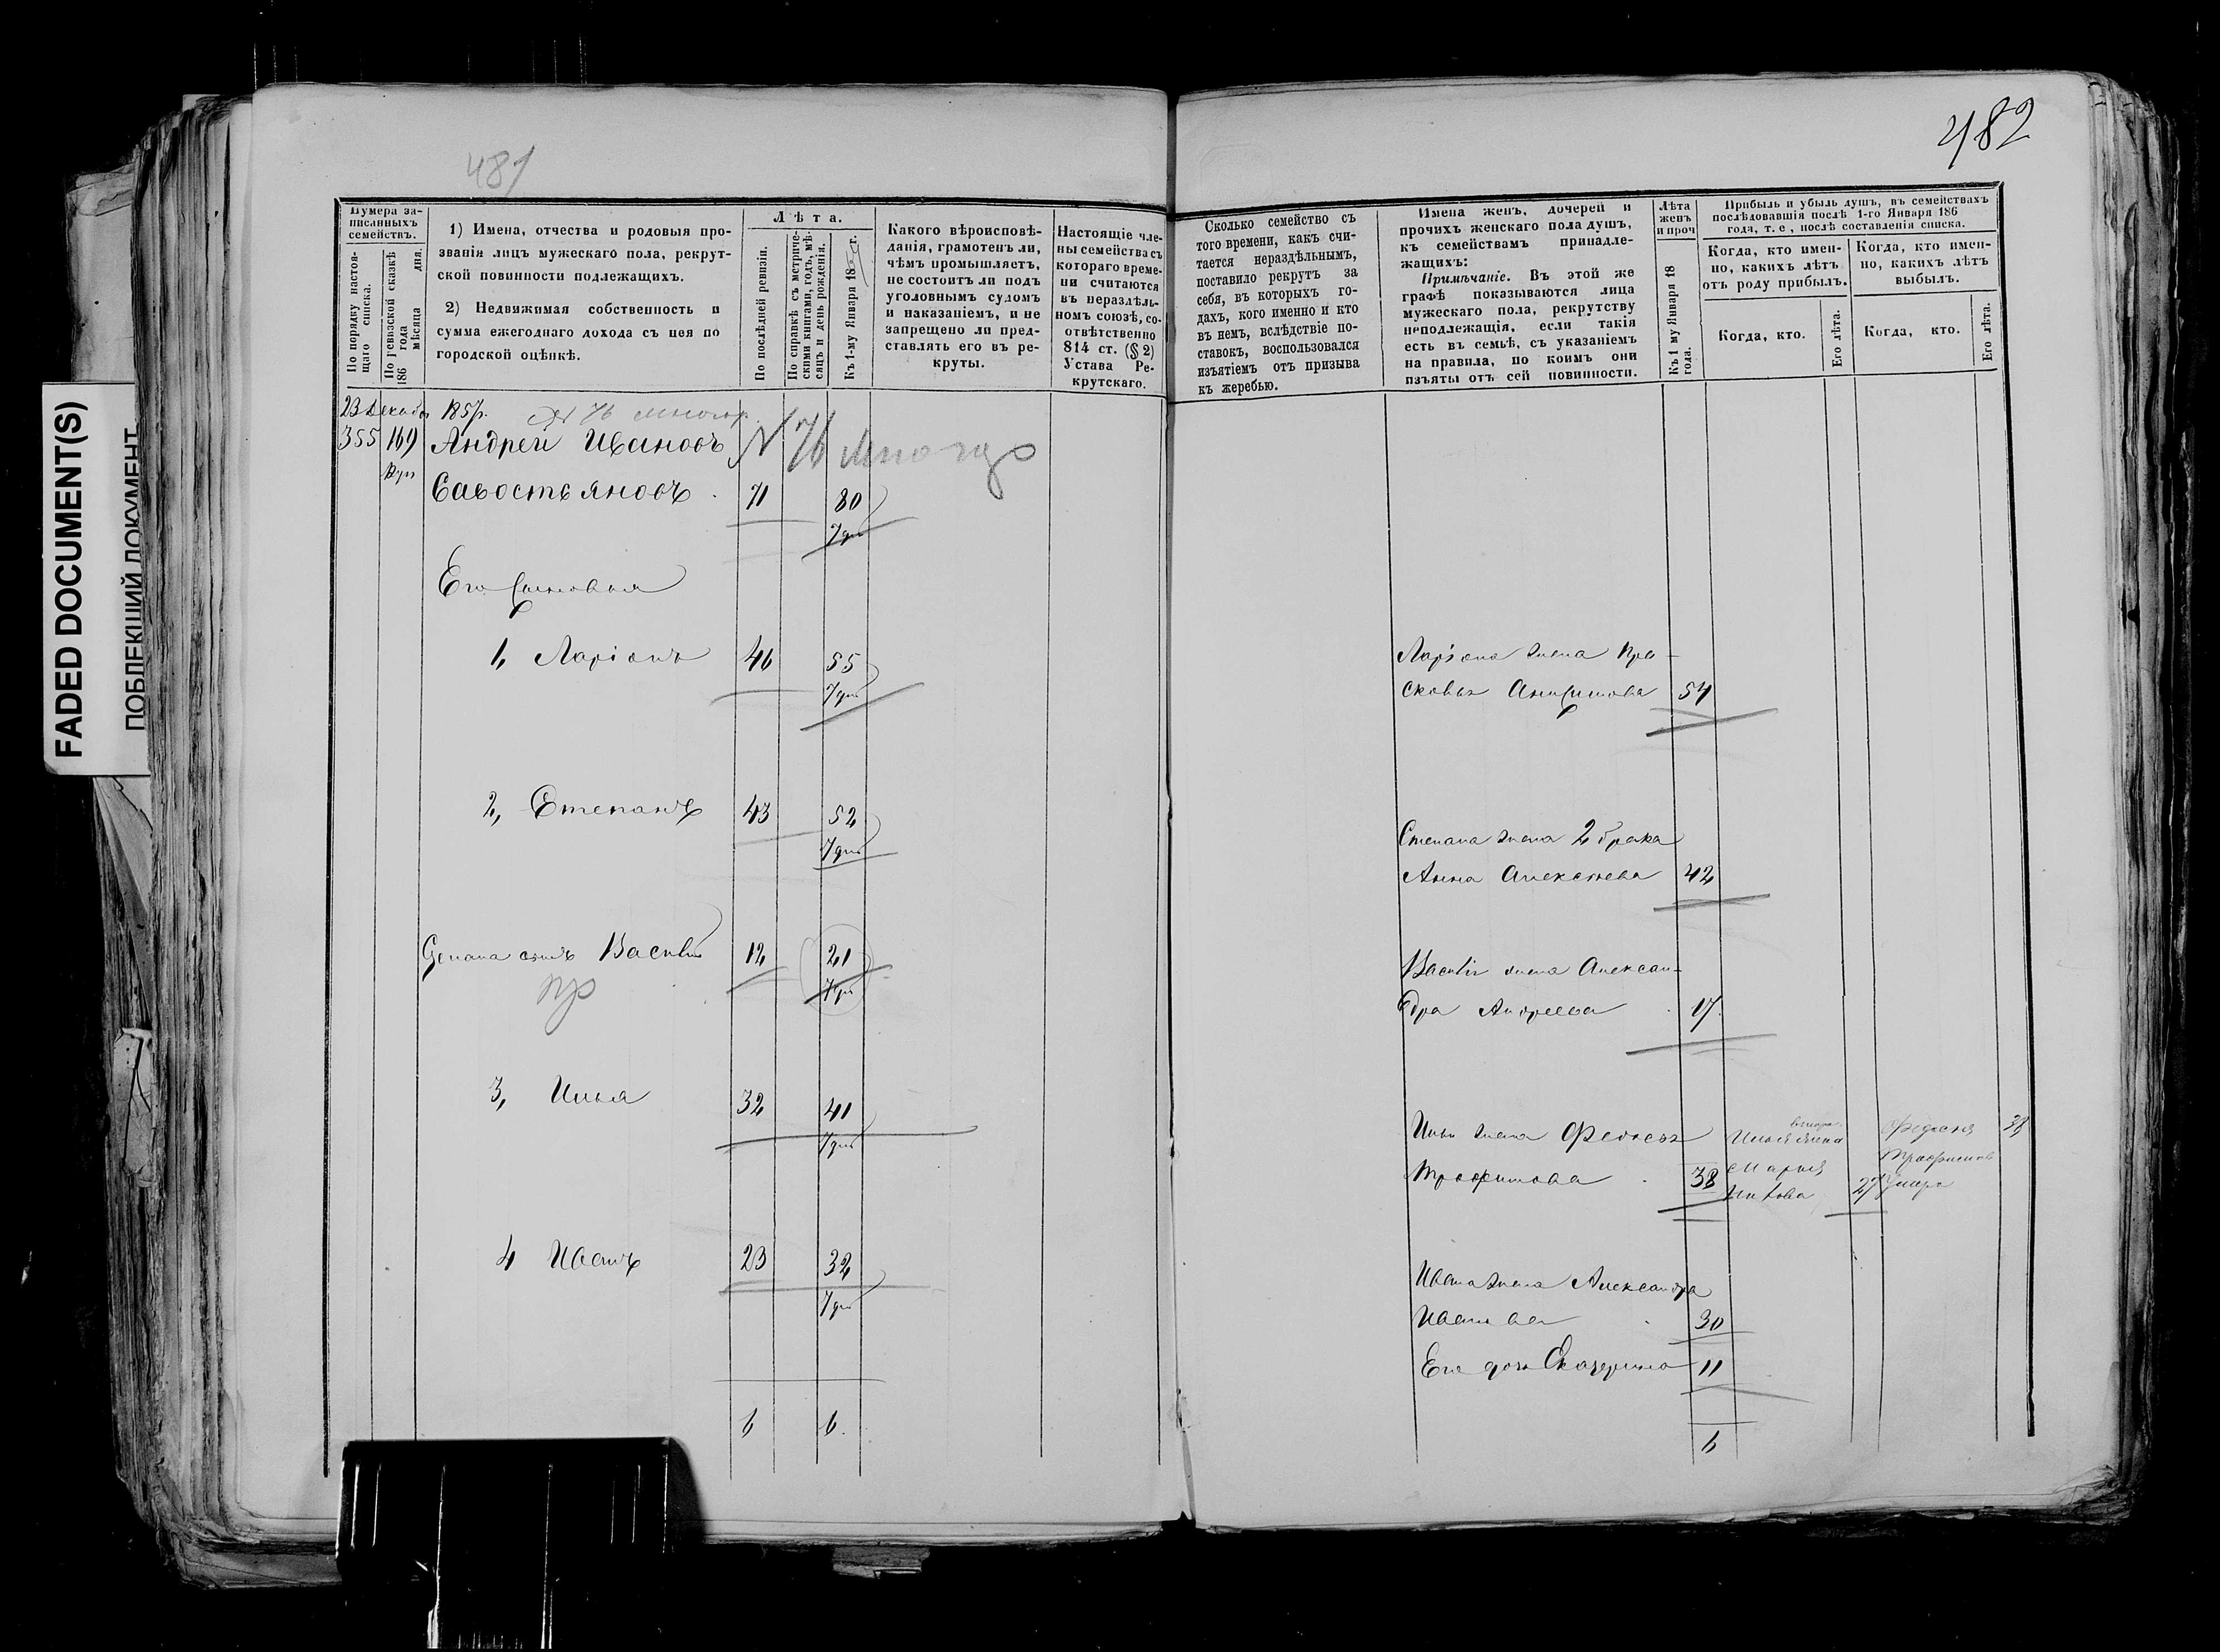 481
482
FADED DOCUMENT(S)
ПОБЛЕКШИЙ ДОКУМЕНТ
Нумера за-
писанныхъ
семействъ.
По порядку настоя-
щаго списка.
По ревизской сказкѣ
186 года
мѣсяца дня.
1) Имена, отчества и родовыя про-
званія лицъ мужескаго пола, рекрут-
ской повинности подлежащихъ.
2) Недвижимая собственность и
сумма ежегоднаго дохода съ нея по
городской оцѣнкѣ.
Лѣта.
По послѣдней ревизіи.
По справкѣ съ метриче-
скими книгами, годъ, мѣ-
сяцъ и день рожденія.
Къ 1-му Января 18 г.
Какого вѣроисповѣ-
данія, грамотенъ ли,
чѣмъ промышляетъ,
не состоитъ ли подъ
уголовнымъ судомъ
и наказаніемъ, и не
запрещено ли пред-
ставлять его въ ре-
круты.
Настоящіе чле-
ны семейства съ
котораго време-
ни считаются
въ нераздѣль-
номъ союзѣ, со-
отвѣтственно
814 ст. (§ 2)
Устава Ре-
крутскаго.
Сколько семейство съ
того времени, какъ счи-
тается нераздѣльнымъ,
поставило рекрутъ за
себя, въ которыхъ го-
дахъ, кого именно и кто
въ немъ, вслѣдствіе по-
ставокъ, воспользовался
изъятіемъ отъ призыва
къ жеребью.
Имена женъ, дочерей и
прочихъ женскаго пола душъ,
къ семействамъ принадле-
жащихъ:
Примѣчаніе. Въ этой же
графѣ показываются лица
мужескаго пола, рекрутству
неподлежащія, если такія
есть въ семьѣ, съ указаніемъ
на правила, по коимъ они
изъяты отъ сей повинности.
Лѣта
женъ
и проч
Къ 1 му Января 18
года.
Прибыль и убыль душъ, въ семействахъ
послѣдовавшія послѣ 1-го Января 186
года, т. е, послѣ составленія списка.
Когда, кто имен-
но, какихъ лѣтъ
отъ роду прибылъ.
Когда, кто имен-
но, какихъ лѣтъ
выбылъ.
Когда, кто.
Его лѣта.
Когда, кто.
Его лѣта.
23 Декабр 1857.
355 169 Андрей Ивановъ N 76
Савостьяновъ 71 80
Его Сыновья
1, Ларіонъ 46 55
Ларіона жена Пра-
сковья Анисимова 54
2, Степанъ 43 52
Степана жена 2 брака
Анна Алексѣева 42
Степана сынъ Василій 12 21
пр
Василія жена Алексан-
дра Андреева 17
3, Илья 32 41
Ильи жена Федосья
Трофимова 38
Ильи жена
Марья
27
Федосья 38
Трофимова
Умерла
4 Иванъ 23 32
Ивана жена Александра
Иванова 30
Его дочь Екатерина 11
6 6.
6